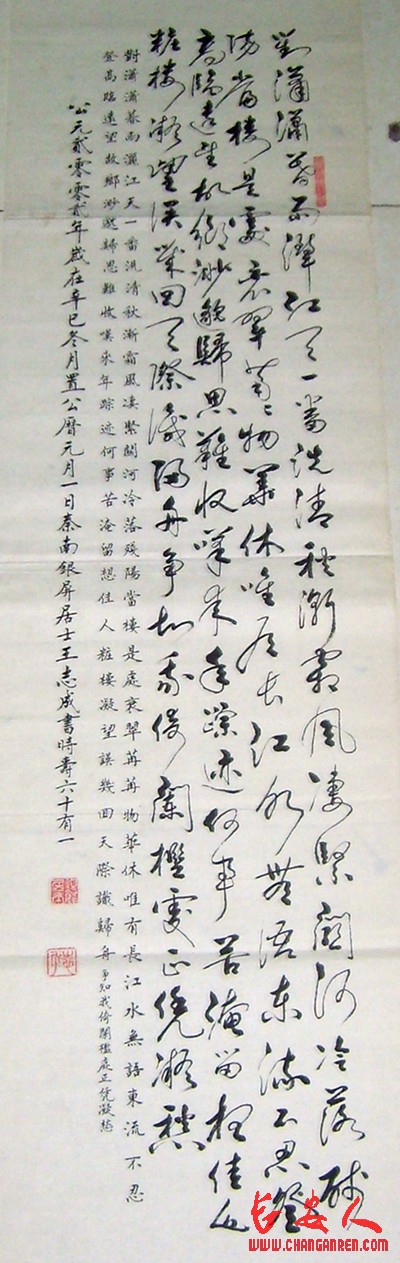 對瀟瀟暮雨灑江天一番洗清秋漸霜風凄緊關河冷落殘
陽當樓是處衰翠苒苒物華休唯有長江水無語東流不忍登
高臨遠望故鄉渺邈歸思難收嘆來年蹤迹何事苦淹留想佳人
粧樓凝望誤幾回天際識歸舟爭知我倚闌檻處正凭凝愁
對瀟瀟暮雨灑江天一番流清秋漸霜風凄緊關河冷落殘陽當樓是處衰翠苒苒物華休唯有長江水無語東流不忍
登高臨遠望故鄉渺邈歸思難收嘆來年踪迹何事苦淹留想佳人粧樓凝望誤幾回天際識歸舟爭知我倚闌檻處正凭凝愁
公元貳零零貳年歲在辛巳冬月置公曆元月一日秦南銀屏居士王志成書時壽六十有一
长安人
www.CHANGANREN.com